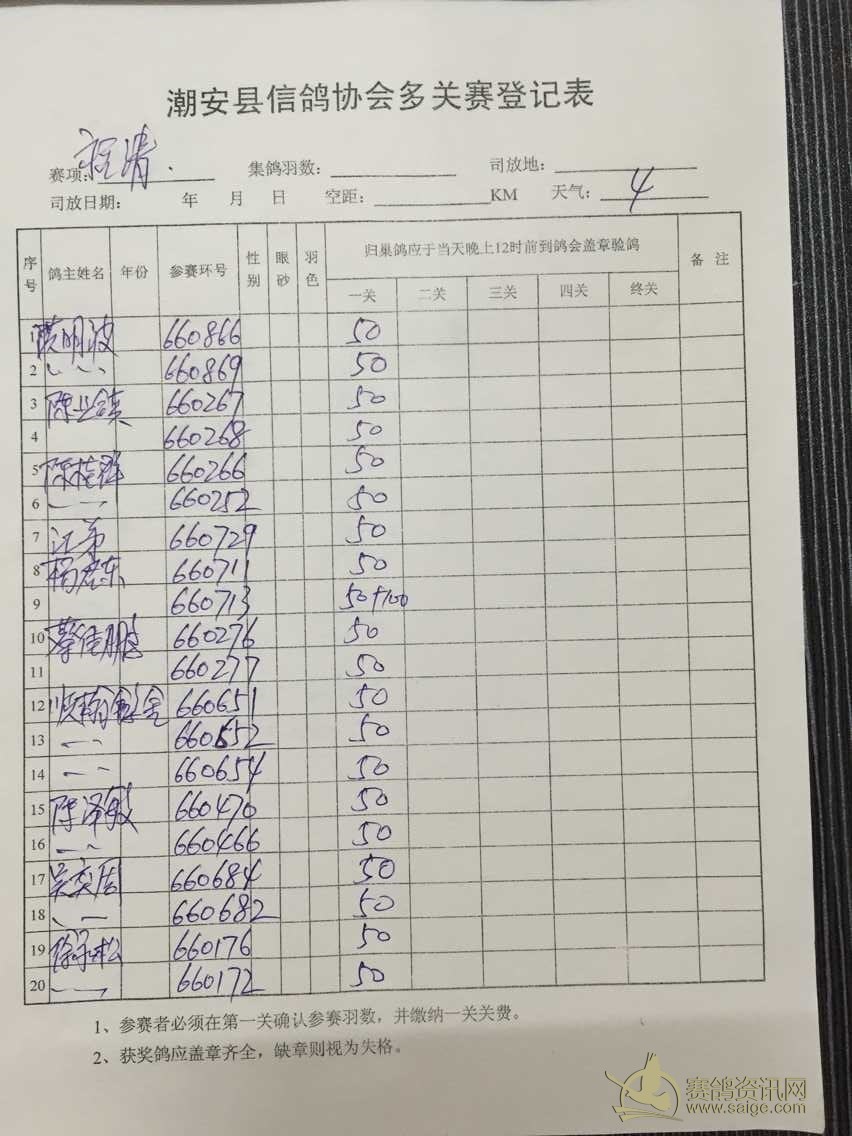 潮安县信鸽协会多关赛登记表
赛项: 程清 集鸽羽数: 司放地:
司放日期: 年 月 日 空距: KM 天气: 4
序号 鸽主姓名 年份 参赛环号 性别 眼砂 羽色 归巢鸽应于当天晚上12时前到鸽会盖章验鸽 备 注
一关 二关 三关 四关 终关
1 明波 660866 50
2 660869 50
3 陈 660267 50
4 660268 50
5 陈桂群 660266 50
6 660252 50
7 江弟 660729 50
8 杨东 660711 50
9 660713 50+100
10 蔡佳鹏 660276 50
11 660277 50
12 顺翰 660651 50
13 660652 50
14 660654 50
15 陈泽敏 660470 50
16 660466 50
17 吴奕周 660684 50
18 660682 50
19 徐松 660176 50
20 660172 50
1、参赛者必须在第一关确认参赛羽数，并缴纳一关关费。
2、获奖鸽应盖章齐全，缺章则视为失格。
赛鸽资讯网
www.saige.com